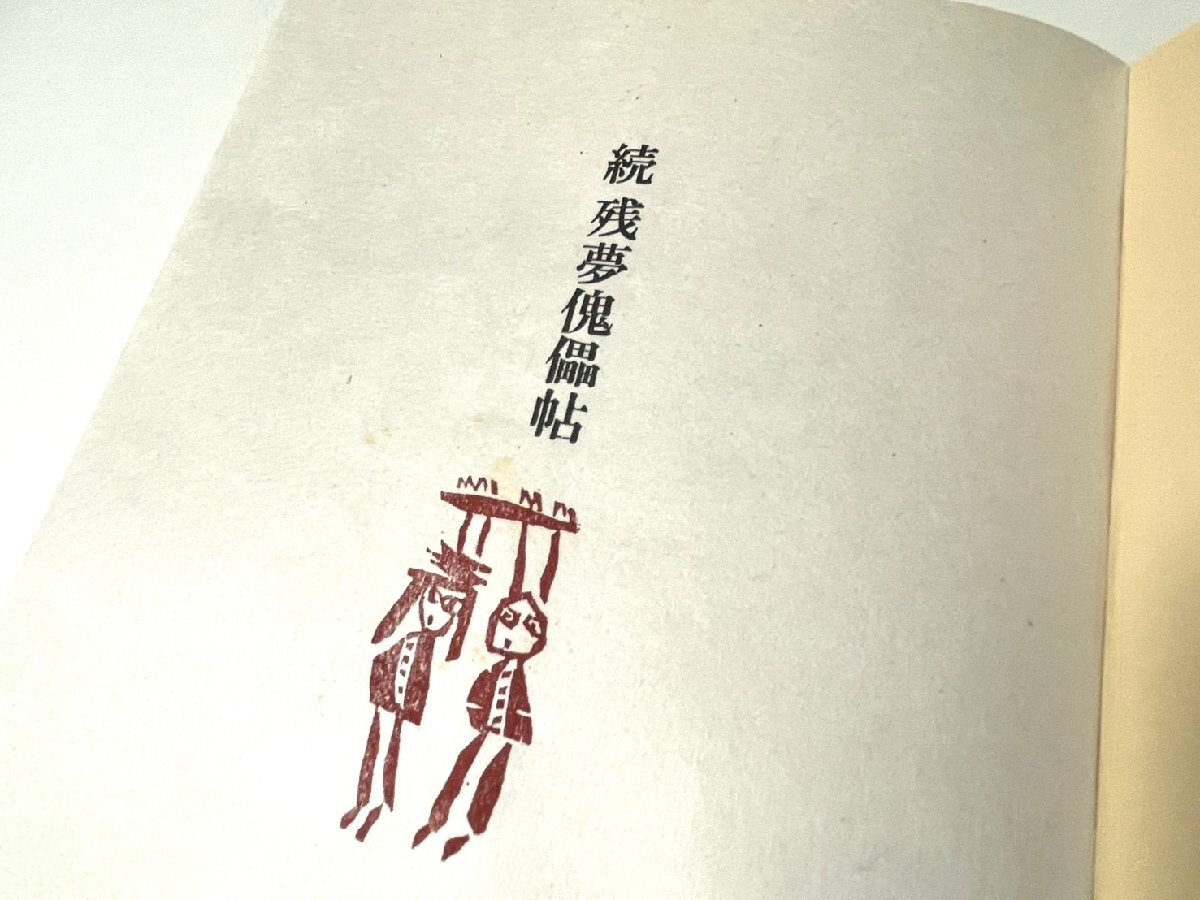 続 残夢傀儡帖